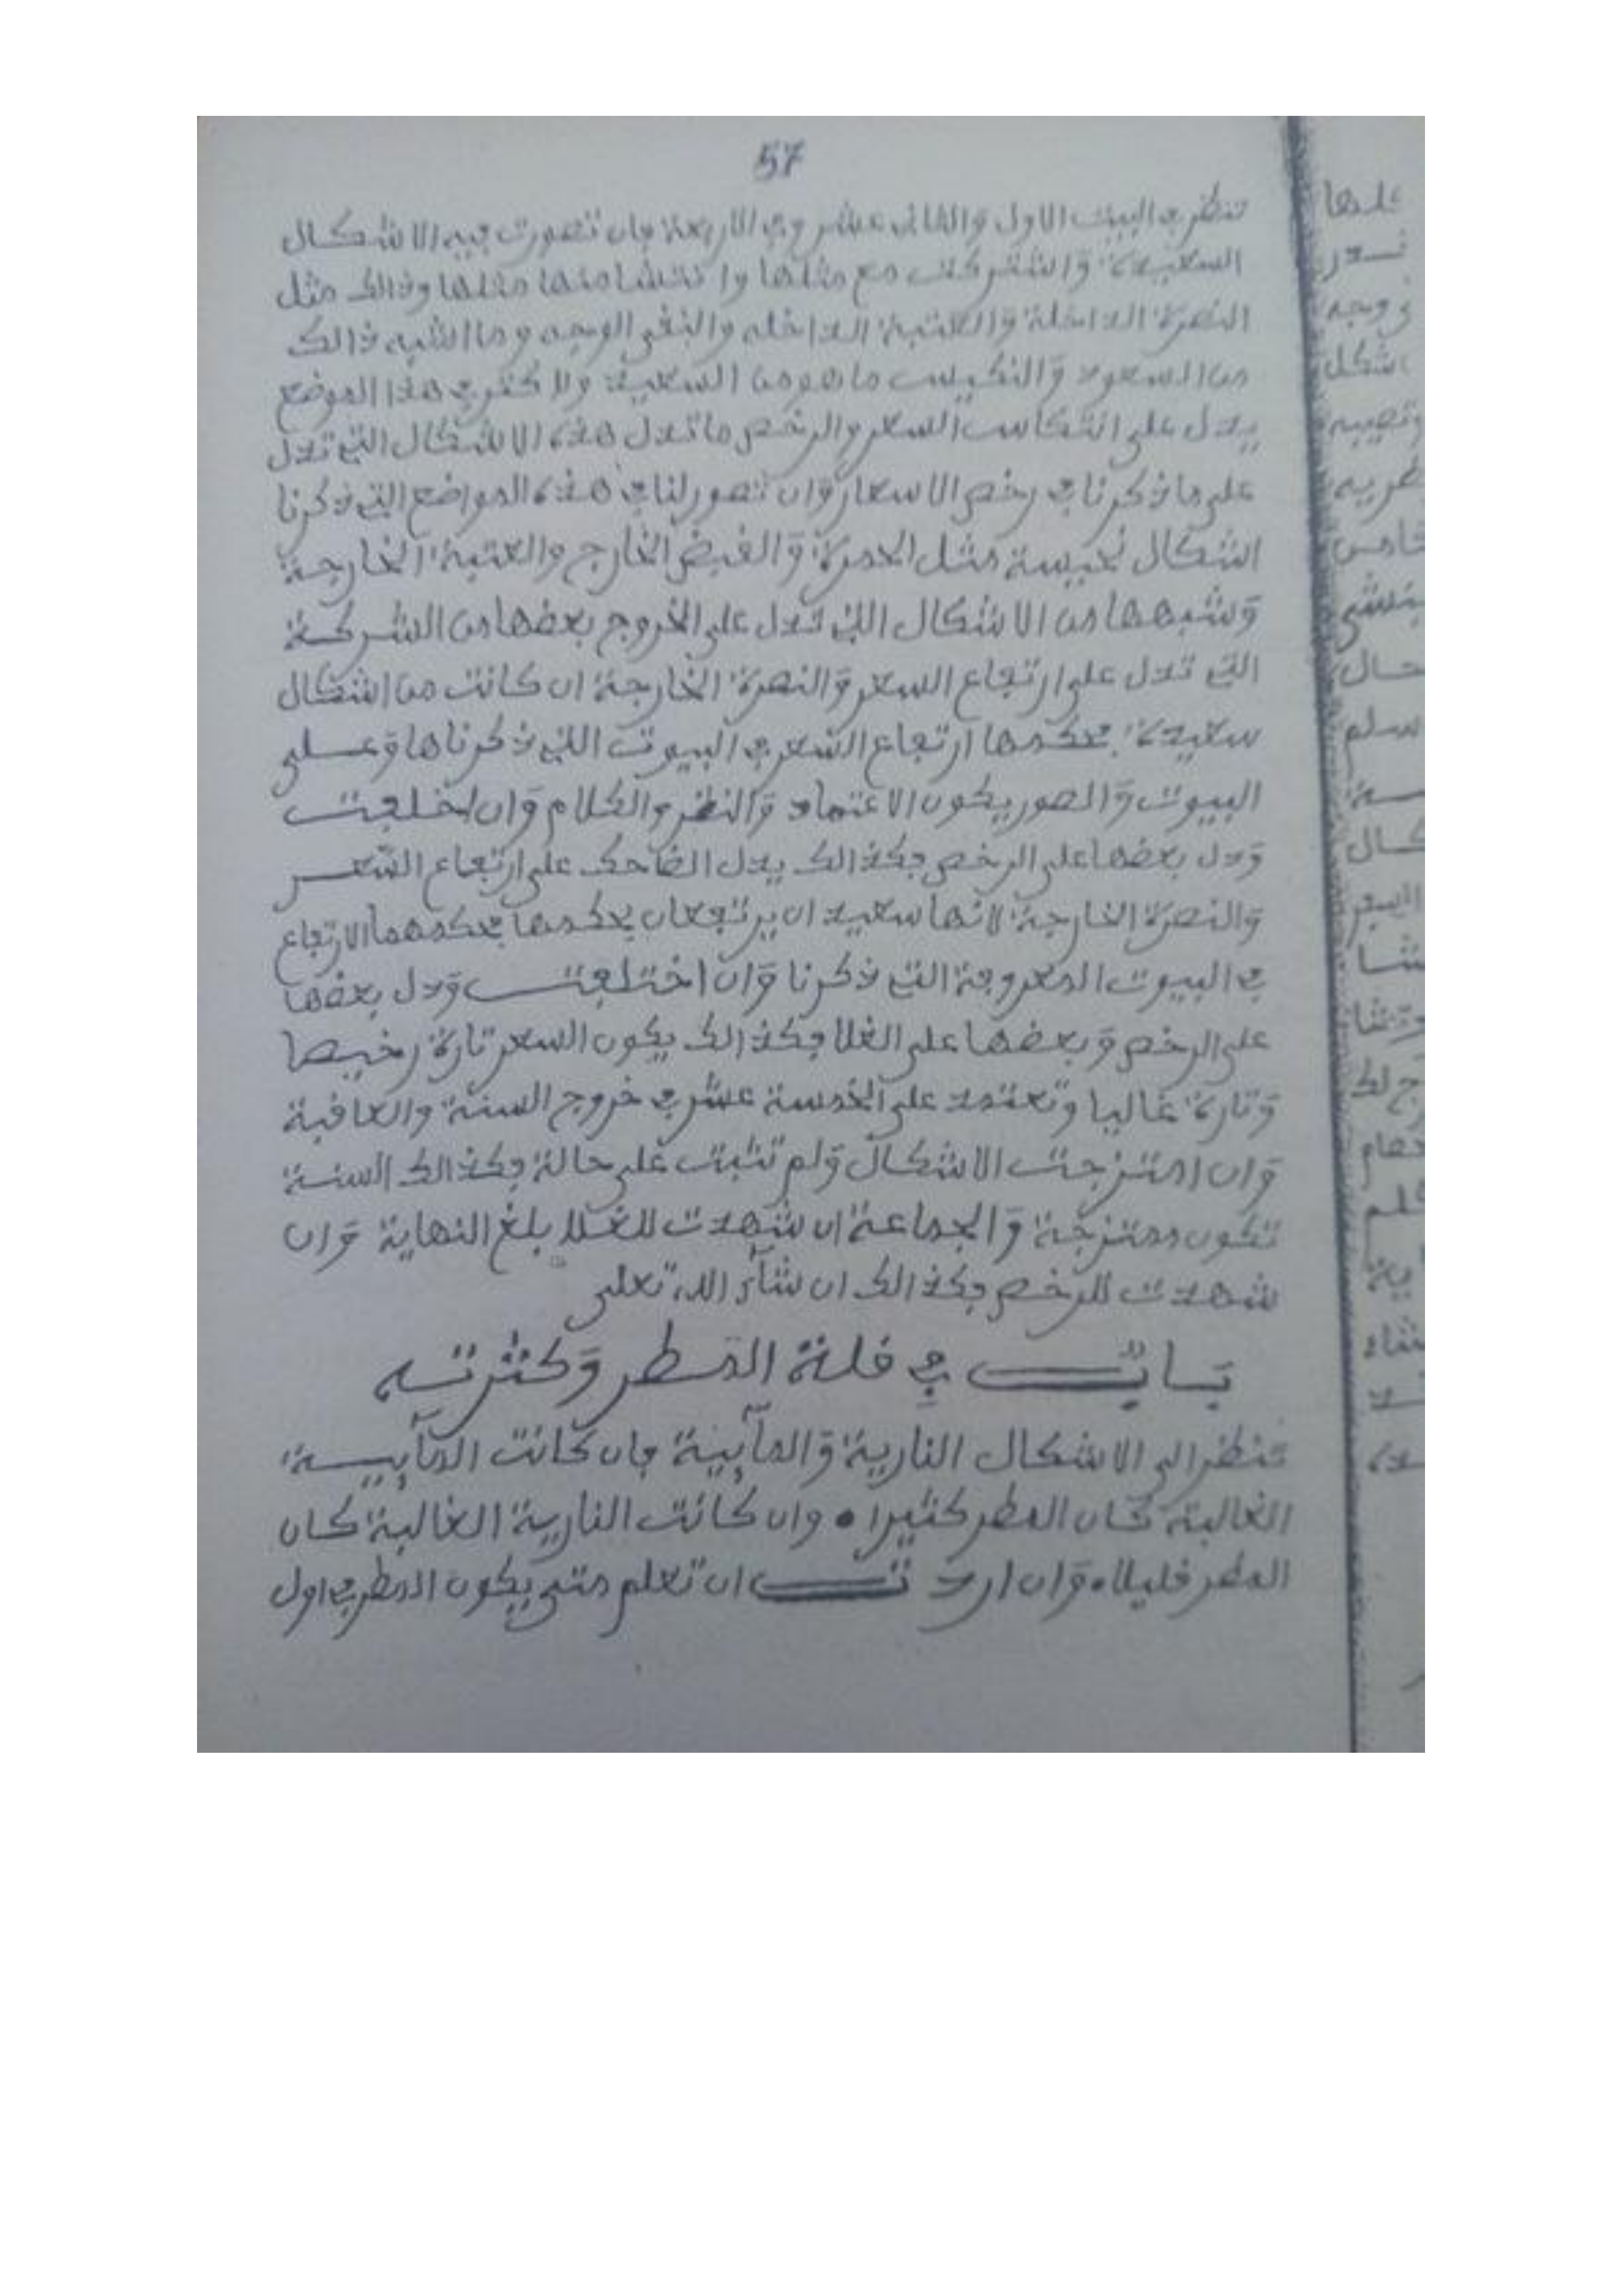 57
تنظر في البيت الاول والثاني عشر وفي الاربعة فان تصورت فيه الاشكال
السعيدة واشتركت مع مثلها وانتشا منها مثلها وذالك مثل
النصرة الداخلة والعتبة الداخله والنقي الوجه وما اشبه ذالك
من السعود والنكيس ما هو من السعيدة ولاكن في هذا الموضع
يدل على انتكاس السعر والرخص ما تدل هذه الاشكال التي تدل
على ما ذكرنا في رخص الاسعار وان تصور لنا في هذه المواضع التي ذكرنا
اشكال نحيسة مثل الحمرة والقبض الخارج والعتبة الخارجة
وشبهها من الاشكال التي تدل على الخروج بعضها من الشركة
التي تدل على ارتفاع السعر والنصرة الخارجة ان كانت من اشكال
سعيدة فحكمها ارتفاع السعر في البيوت التي ذكرناها وعلى
البيوت والصور يكون الاعتماد والنظر والكلام وان اختلفت
ودل بعضها على الرخص فكذالك يدل الضاحك على ارتفاع السعر
والنصرة الخارجة لانها سعيد ان يرتفعان بحكمها فحكمهما الارتفاع
في البيوت المعروفة التي ذكرنا وان اختلفت ودل بعضها
على الرخص وبعضها على الغلا فكذالك يكون السعر تارة رخيصا
وتارة غاليا وتعتمد على الخمسة عشر في خروج السنة والعاقبة
وان امتزجت الاشكال ولم تثبت على حالة فكذالك السنة
تكون ممتزجة والجماعة ان شهدت للغلا بلغ النهاية وان
شهدت للرخص فكذالك ان شآء الله تعلى
باب في قلة المطر وكثرته
تنظر الى الاشكال النارية والمآئية فان كانت المآئية
الغالبة كان المطر كثيرا • وان كانت النارية الغالبة كان
المطر قليلا • وان اردت ان تعلم متى يكون المطر في اول